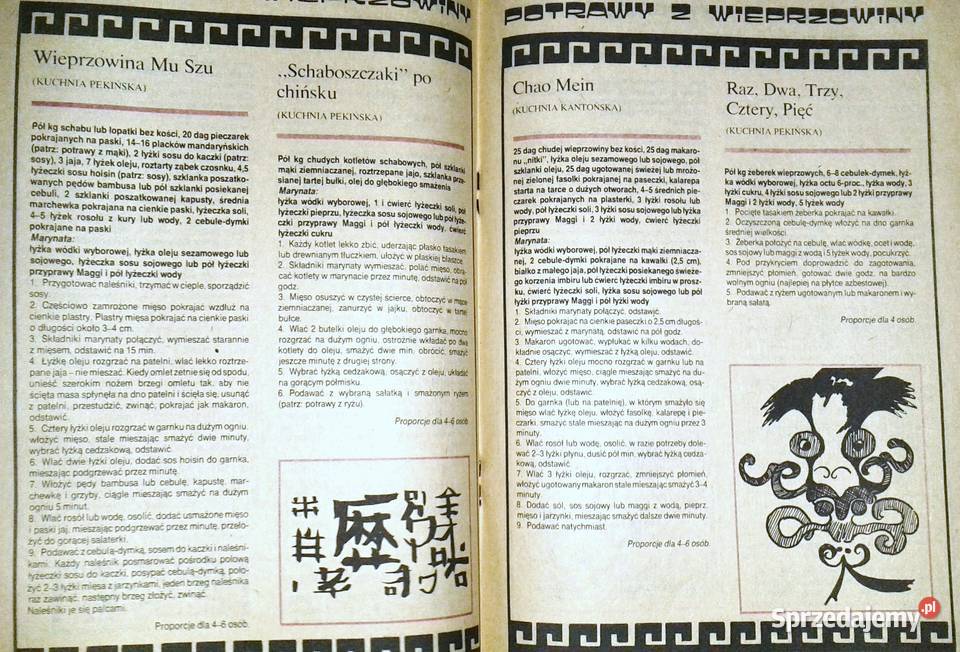 POTRAWY Z WIEPRZOWINY
Wieprzowina Mu Szu
(KUCHNIA PEKIŃSKA)
Pół kg schabu lub łopatki bez kości, 20 dag pieczarek
pokrajanych na paski, 14–16 placków mandaryńskich
(patrz: potrawy z mąki), 2 łyżki sosu do kaczki (patrz:
sosy), 3 jaja, 7 łyżek oleju, roztarty ząbek czosnku, 4,5
łyżeczki sosu hoisin (patrz: sosy), szklanka poszatko-
wanych pędów bambusa lub pół szklanki posiekanej
cebuli, 2 szklanki poszatkowanej kapusty, średnia
marchewka pokrajana na cienkie paski, łyżeczka soli,
4–5 łyżek rosołu z kury lub wody, 2 cebule-dymki
pokrajane na paski
Marynata:
łyżka wódki wyborowej, łyżka oleju sezamowego lub
sojowego, łyżeczka sosu sojowego lub pół łyżeczki
przyprawy Maggi i pół łyżeczki wody
1. Przygotować naleśniki, trzymać w cieple, sporządzić
sosy.
2. Częściowo zamrożone mięso pokrajać wzdłuż na
cienkie plastry. Plastry mięsa pokrajać na cienkie paski
o długości około 3–4 cm.
3. Składniki marynaty połączyć, wymieszać starannie
z mięsem, odstawić na 15 min.
4. Łyżkę oleju rozgrzać na patelni, wlać lekko roztrze-
pane jaja – nie mieszać. Kiedy omlet zetnie się od spodu,
unieść szerokim nożem brzegi omletu tak, aby nie
ścięta masa spłynęła na dno patelni i ścięła się, usunąć
z patelni, przestudzić, zwinąć, pokrajać jak makaron,
odstawić.
5. Cztery łyżki oleju rozgrzać w garnku na dużym ogniu,
włożyć mięso, stale mieszając smażyć dwie minuty,
wybrać łyżką cedzakową, odstawić.
6. Wlać dwie łyżki oleju, dodać sos hoisin do garnka,
mieszając podgrzewać przez minutę.
7. Włożyć pędy bambusa lub cebulę, kapustę, mar-
chewkę i grzyby, ciągle mieszając smażyć na dużym
ogniu 5 minut.
8. Wlać rosół lub wodę, osolić, dodać usmażone mięso
i paski jaj, mieszając podgrzewać przez minutę, przeło-
żyć do gorącej salaterki.
9. Podawać z cebulą-dymką, sosem do kaczki i naleśni-
kami. Każdy naleśnik posmarować pośrodku połową
łyżeczki sosu do kaczki, posypać cebulą-dymką, poło-
żyć 2–3 łyżki mięsa z jarzynkami, jeden brzeg naleśnika
raz zawinąć, następny brzeg złożyć, zwinąć.
Naleśniki je się palcami.
Proporcje dla 4–6 osób.
„Schaboszczaki” po
chińsku
(KUCHNIA PEKIŃSKA)
Pół kg chudych kotletów schabowych, pół szklanki
mąki ziemniaczanej, roztrzepane jajo, szklanka prze-
sianej tartej bułki, olej do głębokiego smażenia
Marynata:
łyżka wódki wyborowej, 1 i ćwierć łyżeczki soli, pół
łyżeczki pieprzu, łyżeczka sosu sojowego lub pół łyże-
czki przyprawy Maggi i pół łyżeczki wody, ćwierć
łyżeczki cukru
1. Każdy kotlet lekko zbić, uderzając płasko tasakiem
lub drewnianym tłuczkiem, ułożyć w płaskiej blaszce.
2. Składniki marynaty wymieszać, polać mięso, obra-
cać kotlety w marynacie przez minutę, odstawić na pół
godz.
3. Mięso osuszyć w czystej ścierce, obtoczyć w mące
ziemniaczanej, zanurzyć w jajku, obtoczyć w tartej
bułce.
4. Wlać 2 butelki oleju do głębokiego garnka, mocno
rozgrzać na dużym ogniu, ostrożnie wkładać po dwa
kotlety do oleju, smażyć dwie min. obrócić, smażyć
jeszcze minutę z drugiej strony.
5. Wybrać łyżką cedzakową, osączyć z oleju, układać
na gorącym półmisku.
6. Podawać z wybraną sałatką i smażonym ryżem
(patrz: potrawy z ryżu).
Proporcje dla 4–6 osób
POTRAWY Z WIEPRZOWINY
Chao Mein
(KUCHNIA KANTOŃSKA)
25 dag chudej wieprzowiny bez kości, 25 dag makaro-
nu „nitki”, łyżka oleju sezamowego lub sojowego, pół
szklanki oleju, 25 dag ugotowanej świeżej lub mrożo-
nej zielonej fasolki pokrajanej na paseczki, kalarepa
starta na tarce o dużych otworach, 4–5 średnich pie-
czarek pokrajanych na plasterki, 3 łyżki rosołu lub
wody, pół łyżeczki soli, 3 łyżki sosu sojowego lub łyżka
przyprawy Maggi i 2 łyżki wody, ćwierć łyżeczki
pieprzu
Marynata:
łyżka wódki wyborowej, pół łyżeczki mąki ziemniacza-
nej, 2 cebule-dymki pokrajane na kawałki (2,5 cm),
białko z małego jaja, pół łyżeczki posiekanego świeże-
go korzenia imbiru lub ćwierć łyżeczki imbiru w prosz-
ku, ćwierć łyżeczki soli, łyżka sosu sojowego lub pół
łyżki przyprawy Maggi i pół łyżki wody
1. Składniki marynaty połączyć, odstawić.
2. Mięso pokrajać na cienkie paseczki o 2,5 cm długoś-
ci, wymieszać z marynatą, odstawić na pół godz.
3. Makaron ugotować, wypłukać w kilku wodach, do-
kładnie osączyć, wymieszać z łyżką oleju, odstawić.
4. Cztery łyżki oleju mocno rozgrzać w garnku lub na
patelni, włożyć mięso, ciągle mieszając smażyć na du-
żym ogniu dwie minuty, wybrać łyżką cedzakową, osą-
czyć z oleju, odstawić.
5. Do garnka (lub na patelnię), w którym smażyło się
mięso wlać łyżkę oleju, włożyć fasolkę, kalarepę i pie-
czarki, smażyć stale mieszając na dużym ogniu przez 3
minuty.
6. Wlać rosół lub wodę, osolić, w razie potrzeby dole-
wać 2–3 łyżki płynu, dusić pół min. wybrać łyżką cedza-
kową, odstawić.
7. Wlać 3 łyżki oleju, rozgrzać, zmniejszyć płomień,
włożyć ugotowany makaron stale mieszając smażyć 3–4
minuty.
8. Dodać sól, sos sojowy lub maggi z wodą, pieprz,
mięso i jarzynki, mieszając smażyć dalsze dwie minuty.
9. Podawać natychmiast.
Proporcje dla 4–6 osób.
Raz, Dwa, Trzy,
Cztery, Pięć
(KUCHNIA PEKIŃSKA)
Pół kg żeberek wieprzowych, 6–8 cebulek-dymek, łyż-
ka wódki wyborowej, łyżka octu 6-proc., łyżka wody, 3
łyżki cukru, 4 łyżki sosu sojowego lub 2 łyżki przyprawy
Maggi i 2 łyżki wody, 5 łyżek wody
1. Pocięte tasakiem żeberka pokrajać na kawałki.
2. Oczyszczoną cebulę-dymkę włożyć na dno garnka
średniej wielkości.
3. Żeberka położyć na cebulę, wlać wódkę, ocet i wodę,
sos sojowy lub maggi z wodą i 5 łyżek wody, pocukrzyć.
4. Pod przykryciem doprowadzić do zagotowania,
zmniejszyć płomień, gotować dwie godz. na bardzo
wolnym ogniu (najlepiej na płytce azbestowej).
5. Podawać z ryżem ugotowanym lub makaronem i wy-
braną sałatą.
Proporcje dla 4 osób.
Sprzedajemy.pl